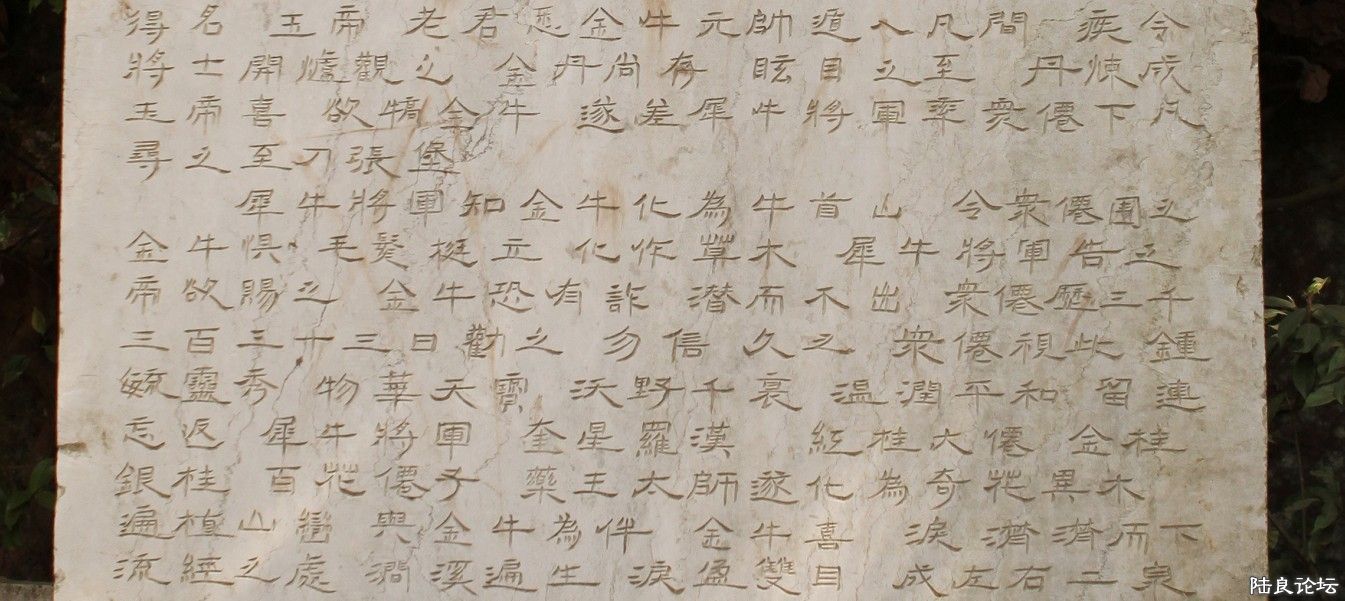 得名 玉帝 老君悉金牛元帥遁入凡間 疾令
將士開爐觀之 金丹尚存 眩目之至 丹煉成
玉帝喜 欲犒金牛 遂差犀牛將軍率衆僊下凡
尋之至刀張堡
犀牛將軍知金牛化為牛首山 令衆僊圍之
金牛惧 毛髮挺立化作草木 犀牛將軍告之
帝欲賜之 金牛恐有詐 潜而不出 衆僊歷三千
三百三十三日勸之 勿信 久之 衆僊視此 鍾
毓靈秀 物華天寶 沃野千裏 温潤平和 留連
忘返 犀牛將軍 奎星羅漢 紅桂大僊 金桂
銀桂 百花僊子 藥王太師遂化為奇花異木
遍植山巒 與金牛為伴 金牛喜 淚濟濟而下
流經之處 澗溪遍生 淚盈雙目 成左右二泉
陆良论坛